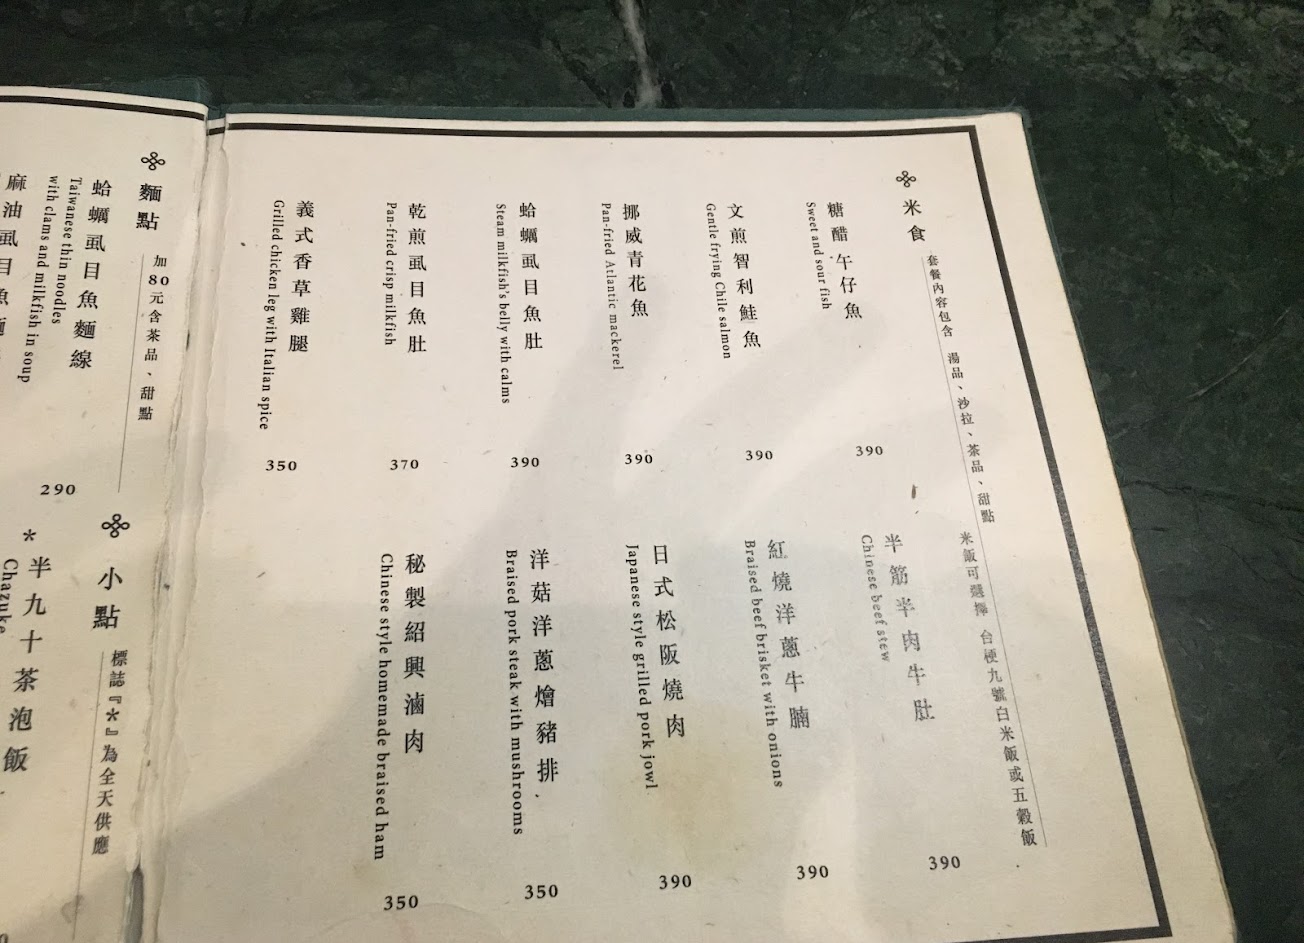 米食
套餐內容包含 湯品、沙拉、茶品、甜點 米飯可選擇 台梗九號白米飯或五穀飯
糖醋午仔魚
Sweet and sour fish
390
文煎智利鮭魚
Gentle frying Chile salmon
390
挪威青花魚
Pan-fried Atlantic mackerel
390
蛤蠣虱目魚肚
Steam milkfish's belly with calms
390
乾煎虱目魚肚
Pan-fried crisp milkfish
370
義式香草雞腿
Grilled chicken leg with Italian spice
350
半筋半肉牛肚
Chinese beef stew
390
紅燒洋蔥牛腩
Braised beef brisket with onions
390
日式松阪燒肉
Japanese style grilled pork jowl
390
洋菇洋蔥燴豬排
Braised pork steak with mushrooms
350
秘製紹興滷肉
Chinese style homemade braised ham
350
麵點
加80元含茶品、甜點
蛤蠣虱目魚麵線
Taiwanese thin noodles
with clams and milkfish in soup
290
麻油虱目魚麵
小點
標誌『*』為全天供應
*半九十茶泡飯
Chazuke